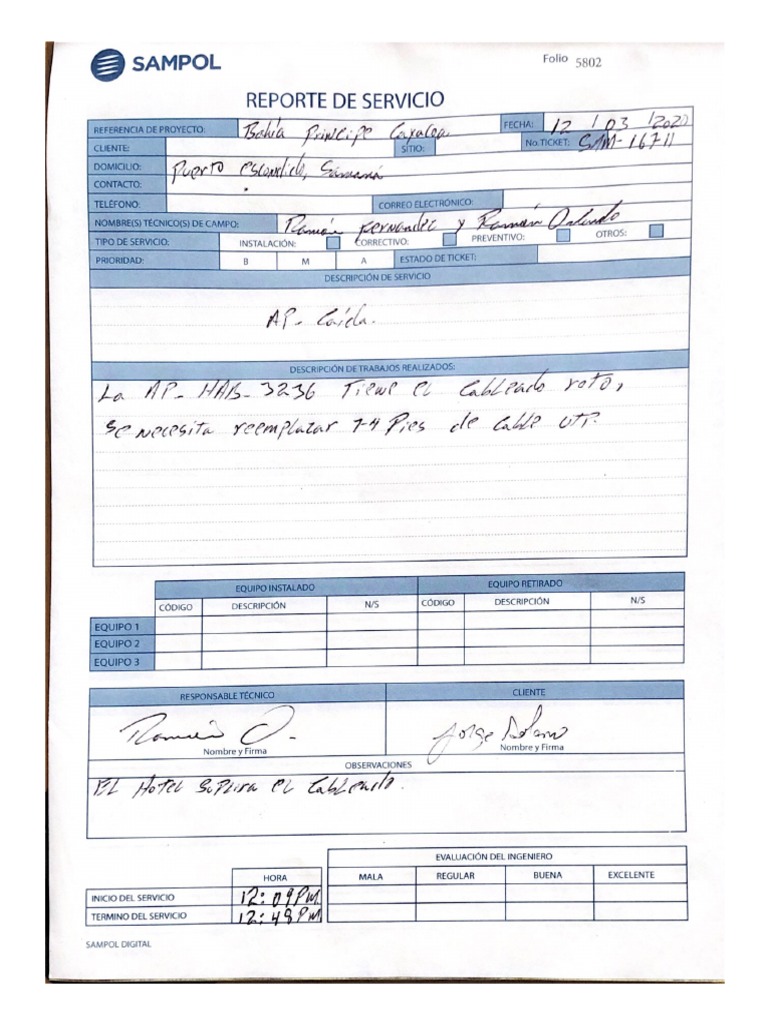 SAMPOL
Folio 5802
REPORTE DE SERVICIO
REFERENCIA DE PROYECTO: Bahía Principe Cayacoa. FECHA: 12 / 03 / 2020
CLIENTE: SITIO: No. TICKET: SAM-16711
DOMICILIO: Puerto escondido, Samaná
CONTACTO:
TELÉFONO: CORREO ELECTRÓNICO:
NOMBRE(S) TÉCNICO(S) DE CAMPO: Ramón fernandez y Ramón Orlando
TIPO DE SERVICIO: INSTALACIÓN: CORRECTIVO: PREVENTIVO: OTROS:
PRIORIDAD: B M A ESTADO DE TICKET:
DESCRIPCIÓN DE SERVICIO
AP- Caída.
DESCRIPCIÓN DE TRABAJOS REALIZADOS:
La AP-HAB-3236 Tiene el Cableado roto,
se necesita reemplazar 74 Pies de Cable UTP.
EQUIPO INSTALADO EQUIPO RETIRADO
CÓDIGO DESCRIPCIÓN N/S CÓDIGO DESCRIPCIÓN N/S
EQUIPO 1
EQUIPO 2
EQUIPO 3
RESPONSABLE TÉCNICO CLIENTE
Ramón O. Jorge
Nombre y Firma Nombre y Firma
OBSERVACIONES
EL HOTEL SUPLIRA EL CABLEADO.
EVALUACIÓN DEL INGENIERO
HORA MALA REGULAR BUENA EXCELENTE
INICIO DEL SERVICIO 12:09 PM
TERMINO DEL SERVICIO 12:48 PM
SAMPOL DIGITAL